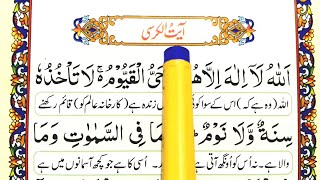 آیت الکرسی
اَللّٰهُ لَاۤ اِلٰهَ اِلَّا هُوَ الْحَیُّ الْقَیُّوْمُ ۚ لَا تَاْخُذُهٗ
اللہ (وہ ہے کہ) اس کے سوا کو زندہ ہے (کارخانہ عالم کو) قائم رکھنے
سِنَةٌ وَّلَا نَوْمٌ ؕ مَا فِی السَّمٰوٰتِ وَمَا
والا ہے۔ نہ اُس کو اُونگھ آتی ہے اُسی کا ہے جو کچھ آسمانوں میں ہے